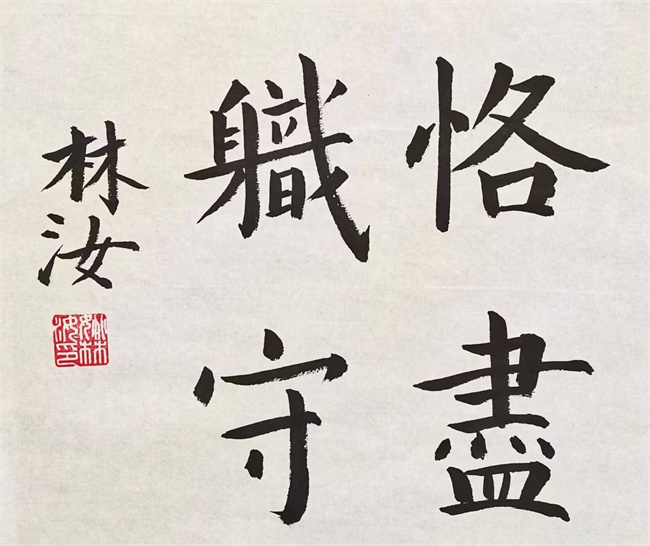 恪盡
軄守
林汝